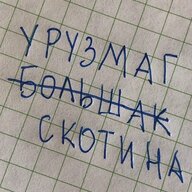 УРУЗМАГ
БОЛЬШАК
СКОТИНА